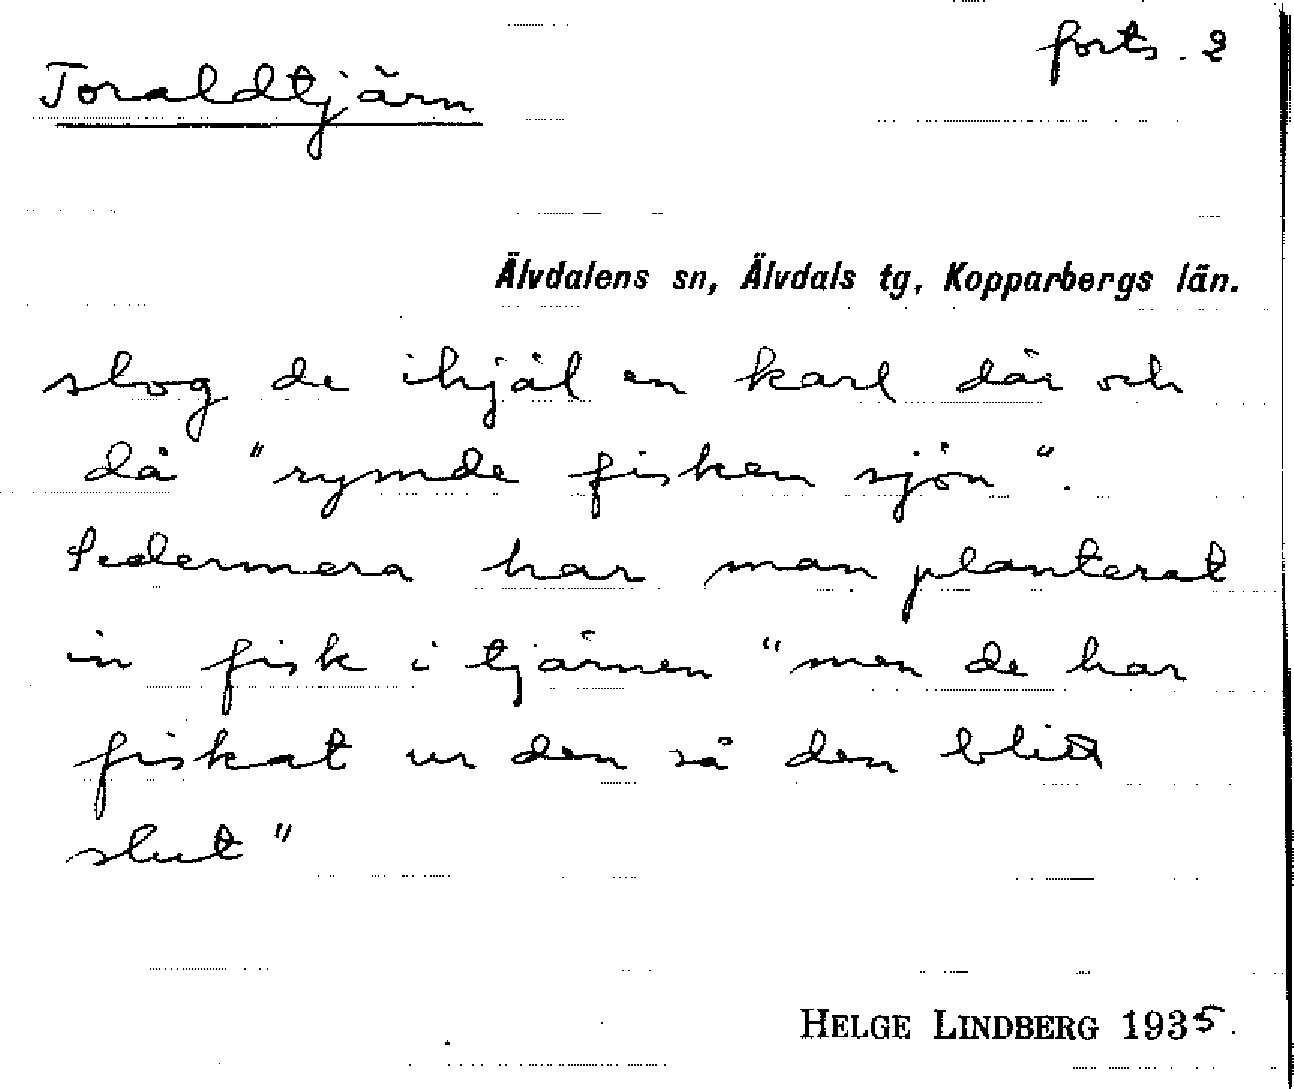 forts. 2
Toraldtjärn
Älvdalens sn, Älvdals tg, Kopparbergs län.
slog de ihjäl en karl där och
då "rymde fisken sjön".
Sedermera har man planterat
in fisk i tjärnen "men de har
fiskat ur den så den blitt
slut"
HELGE LINDBERG 1935.